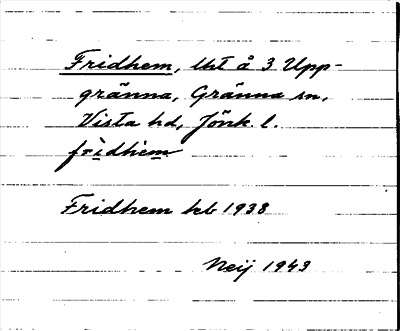 Fridhem, lht å 3 Upp-
gränna, Gränna sn,
Vista hd, Jönk. l.
fridhem
Fridhem kb 1938
Neij 1943